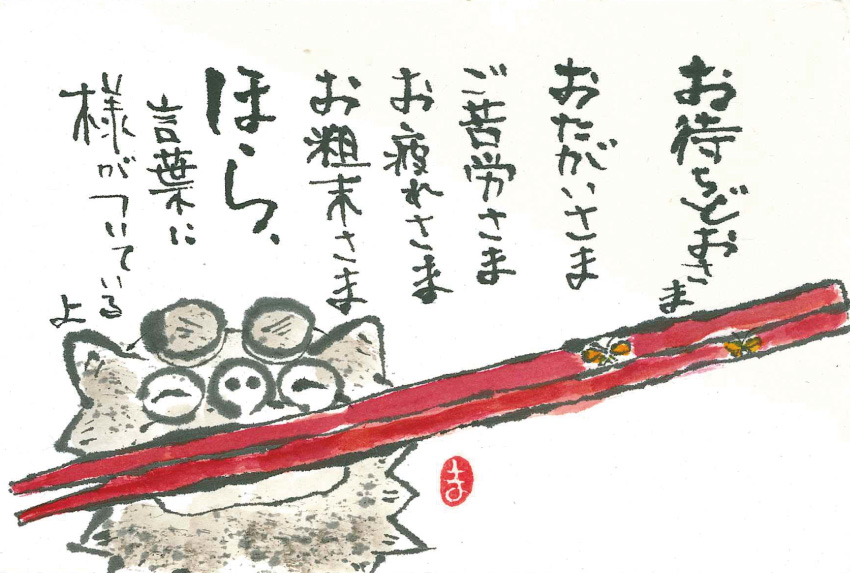 お待ちどおさま
おたがいさま
ご苦労さま
お疲れさま
お粗末さま
ほら、
言葉に
様がついている
よ